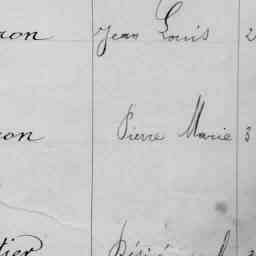 ron Jean Louis 2
on Pierre Marie 3
tier Désiré